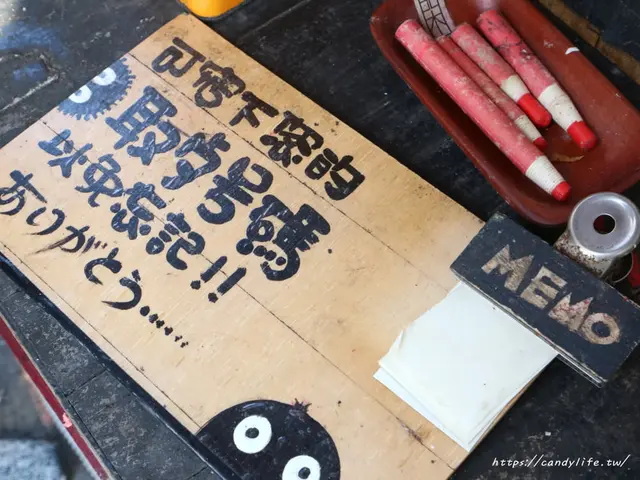 可害下蔭的
取号碼
以免忘記!!
ありがとう......
MEMO
https://candylife.tw/